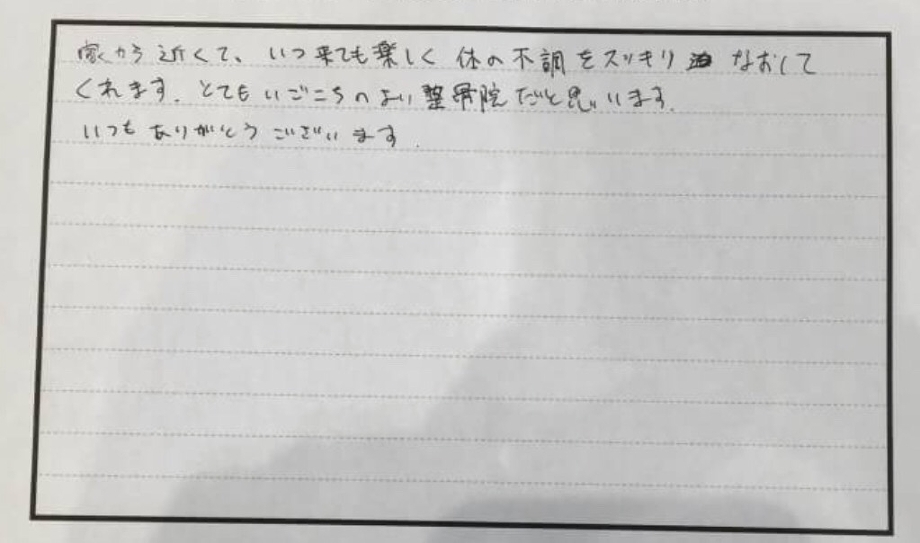 家から近くて、いつ来ても楽しく 体の不調をスッキリ なおして
くれます。とてもいごこちのよい整骨院だと思います。
いつもありがとうございます。